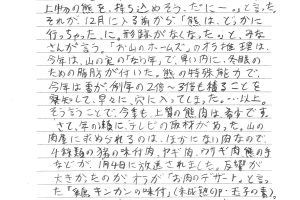 上物の熊を、持ち込めそうだに ー。と言った
それが、12月に入る前から「熊は、どっかに
行っちゃったに。形跡がなくなった。」と、みな
さんが言う。「お山のホームズ」のオラ推理は、
今年は、山の実の「なり年」で、早い内に、冬眠の
ための脂肪が付いた。熊の特殊能力で、
今年は雪が、例年の2倍～3倍も積ることを
察知して、早々に、穴に入ってしまった。…以上。
そういうことで、今季も、上質の熊肉は、希少です
さて、年の瀬に、テレビの取材があった。山の
肉屋に求められるのは、ほかにない肉で、
4種類の猪の味付肉、ヤギ肉、ウサギ肉、熊の手
などが、1月4日に放送されました。反響が
大きかったのが、オラが「お肉のデザート」と言っ
た「熊キンカンの味付」(未成熟の ・玉子の素)。